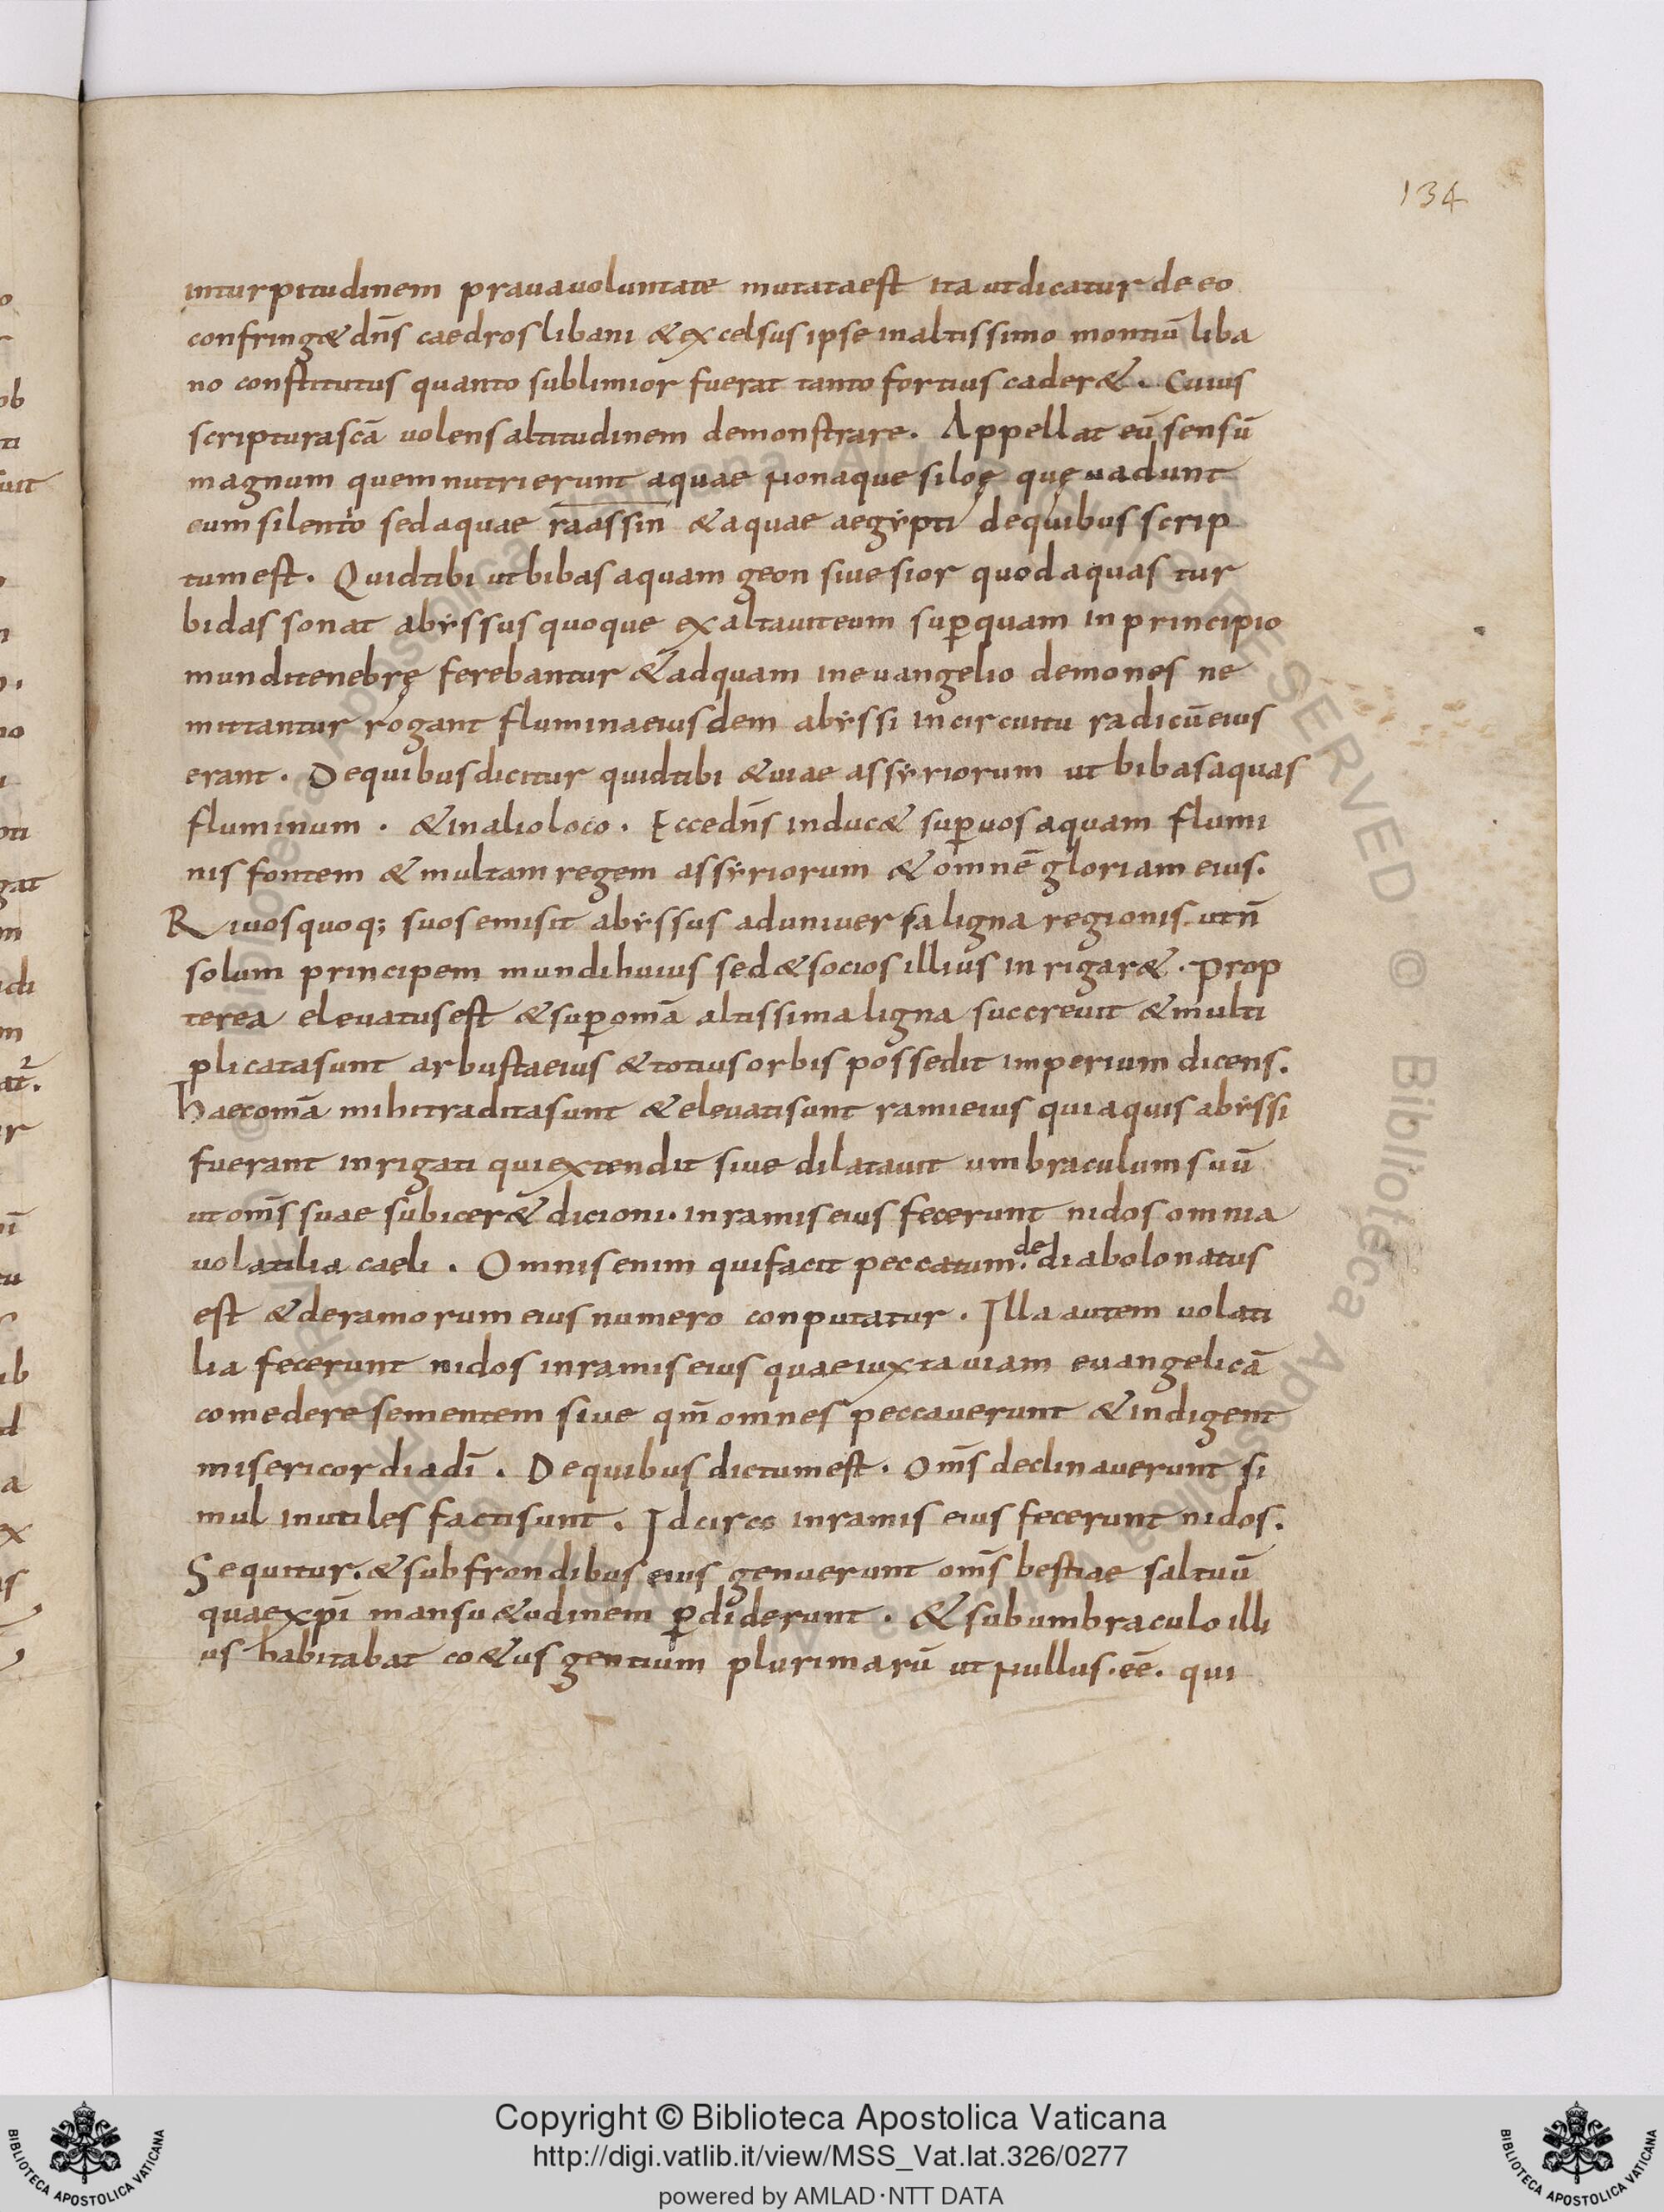 134
inturpitudinem prauauoluntate mutataest ita utdicatur de eo
confring& dn̄s caedros libani & excelsus ipse inaltissimo montiū liba
no constitutus quanto sublimior fuerat tanto fortius cader&. Cuius
scripturascā uolens altitudinem demonstrare. Appellat eū sensū
magnum quem nutrierunt aquae nonaque siloę quę uadunt
cum silentio sed aquae raassin & aquae aegẏpti dequibus scrip
tum est. Quidtibi ut bibas aquam geon siue sior quod aquas tur
bidas sonat abẏssus quoque exaltauit eum sup̱quam in principio
munditenebrę ferebantur & adquam ineuangelio demones ne
mittantur rogant fluminaeiusdem abẏssi incircuitu radicū eius
erant. Dequibus dicitur quidtibi & uiae assẏriorum ut bibas aquas
fluminum. & inalioloco. Ecce dn̄s induc& sup̱uos aquam flumi
nis fontem & multam regem assẏriorum & omnē gloriam eius.
Riuos quoq; suos emisit abẏssus aduniuersa ligna regionis utn̄
solum principem mundi huius sed & socios illius inrigar&. prop
terea eleuatus est & sup̱ omā altissima ligna succreuit & multi
plicatasunt arbustaeius & totius orbis possedit imperium dicens.
haecomā mihitradita sunt & eleuatisunt ramieius qui aquis abẏssi
fuerant inrigati qui extendit siue dilatauit umbraculum suū
ut om̄s suae subicer& dicioni. inramis eius fecerunt nidos omnia
uolatilia caeli. Omnis enim quifacit peccatum. de diabolo natus
est & deramorum eius numero conputatur. Illa autem uolati
lia fecerunt nidos inramis eius quae iuxta uiam euangelicā
comedere sementem siue qm̄ omnes peccauerunt & indigent
misericordia dī. Dequibus dictum est. Om̄s declinauerunt si
mul inutiles factisunt. Idcirco inramis eius fecerunt nidos.
Sequitur. & subfrondibus eius genuerunt om̄s bestiae saltuū
quae xp̄i mansu&udinem p̱diderunt. & sub umbraculo illi
us habitabat co&us gentium plurimarū ut nullus. eē. qui
Copyright © Biblioteca Apostolica Vaticana
http://digi.vatlib.it/view/MSS_Vat.lat.326/0277
powered by AMLAD·NTT DATA
BIBLIOTECA APOSTOLICA VATICANA
BIBLIOTECA APOSTOLICA VATICANA